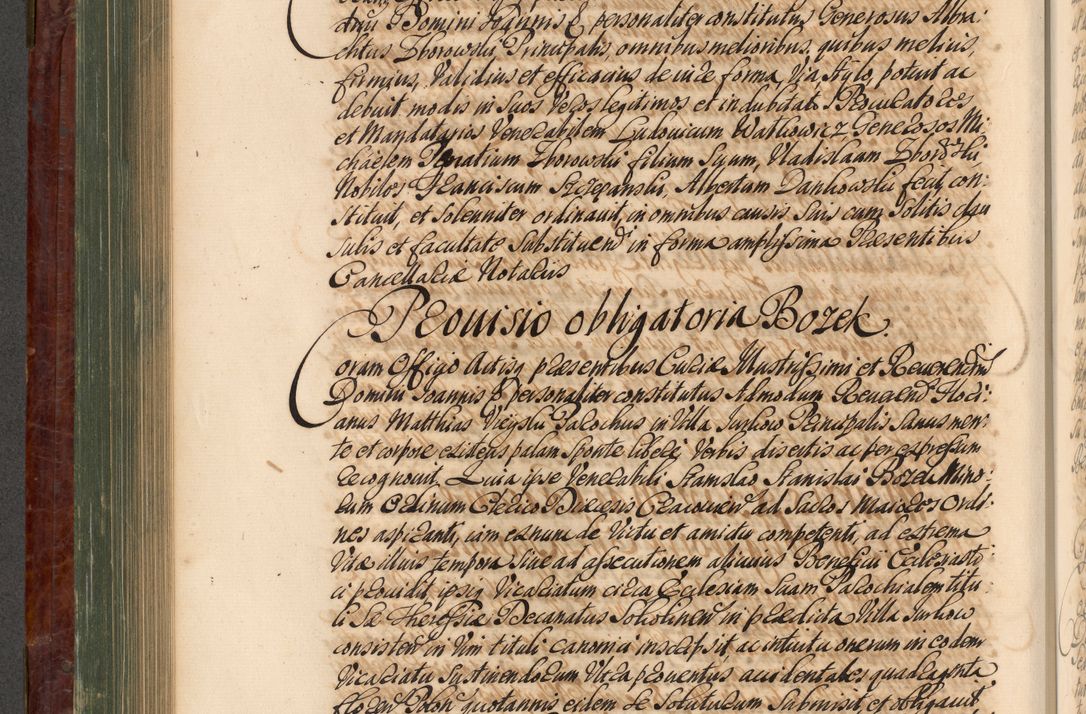 Domini Joannis & personaliter constitutus Generosus Albra-
chtus Zborowski Principalis, omnibus melioribus, quibus melius,
firmius, validius et efficacius de iure forma, via stylo, potuit ac
debuit modis in suos veros legitimos et indubitat Procuratores
et Mandatarios Venerabilem Ludovicum Watkowicz Generosos Mi-
chaelem Ignatium Zborowski filium Suum, Vladislaum Zborowski
Nobiles Franciscum Szczepanski, Albertum Dankowski fecit con-
stituit, et solenniter ordinavit, in omnibus causis suis cum solitis clau
sulis et facultate substituend in forma amplissima Praesentibus
Cancellariae Notariis
Provisio obligatoria Bozek
oram Officio Actisq praesentibus Curiae Illustrissimi et Reverendmi
Domini Joannis & personaliter constitutus Admodum Reverend Flori-
anus Matthias Parochus in Villa Principalis sanus men-
te et corpore existens palam sponte libere verbis disertis ac per expressum
recognovit. Quia ipse Venerabili Stanislao Stanislai Bozek Mino-
rum Ordinum Clerico Dioecesis Cracovien ad Sacros Maiores Ordi-
nes aspiranti, iam ex nunc de victu et amictu competenti, ad extrema
vitae illius tempora sive ad assecutionem alicuius Beneficii Ecclesiasti-
ci providit ipsiq Vicariatum circa Ecclesiam suam Parochialem titu-
li Decanatus in praedicta Villa
consisten in vim tituli canonici inscripsit ac intuitu onerum in eodem
Vicariatu sustinendorum ultra proventus accidentales quadraginta
floren Polon quotannis eidem se soluturum submisit et obligavit